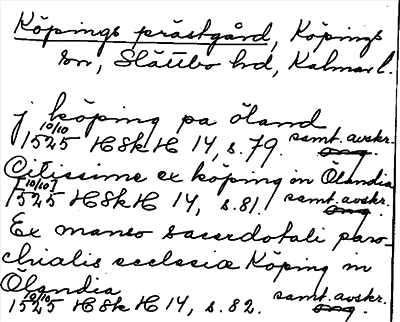 Köpings prästgård, Köpings
sn, Slättbo hd, Kalmar l.
j köping pa öland
10/10 1525 HSkH 14, s. 79. samt. avskr.
Citissime ex köping in Ölandia
[10/10] 1525 HSkH 14, s. 81. samt. avskr.
Ex manso sacerdotali paro-
chialis ecclesiæ Köping in
Ölandia
10/10 1525 HSkH 14, s. 82. samt. avskr.